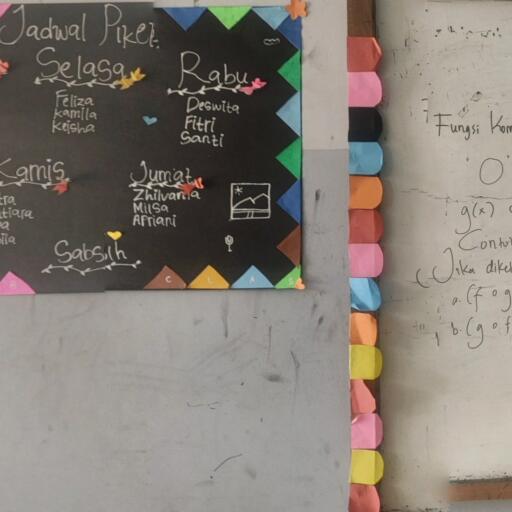 Jadwal Piket
Selasa
Feliza
Kamila
Keisha
Rabu
Deswita
Fitri
Santi
Kamis
Jumat
Zhilvania
Milsa
Afriani
Sabsih
C L A S
Fungsi Kom
O
g(x)
Contoh
Jika dike
a. (f o g
b. (g o f